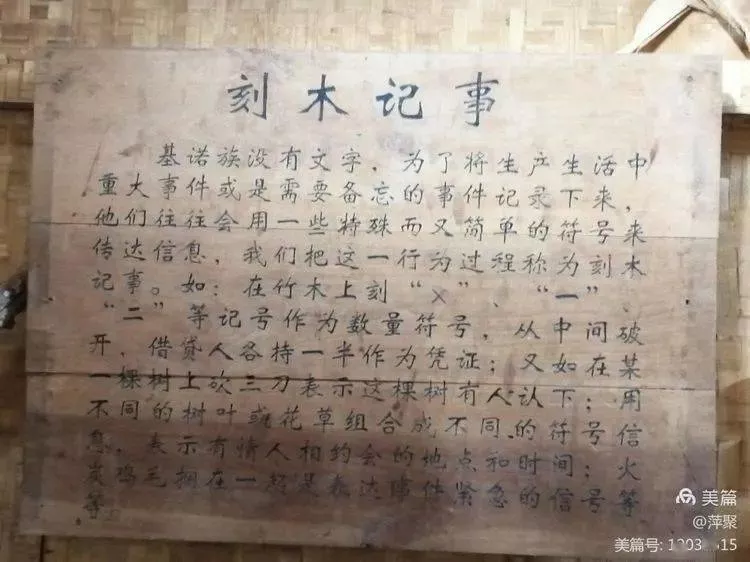 刻木记事
基诺族没有文字，为了将生产生活中
重大事件或是需要备忘的事件记录下来，
他们往往会用一些特殊而又简单的符号来
传达信息，我们把这一行为过程称为刻木
记事。如：在竹木上刻“×”、“一”、
“二”等记号作为数量符号，从中间破
开，借贷人各持一半作为凭证；又如在某
一棵树上砍三刀表示这棵树有人认下；用
不同的树叶或花草组合成不同的符号信
息，表示有情人相约会的地点和时间；火
炭鸡毛捆在一起是表达事件紧急的信号等
等
美篇
@萍聚
美篇号: